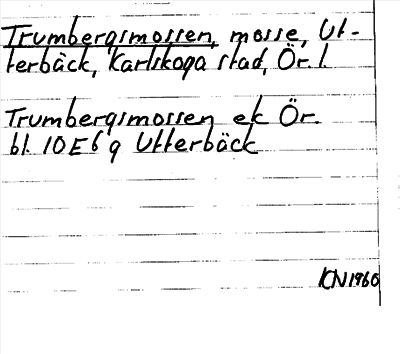 Trumbergsmossen, mosse, Ut-
terbäck, Karlskoga stad, Ör. l.
Trumbergsmossen ek Ör.
bl. 10E6g Utterbäck
KN1960